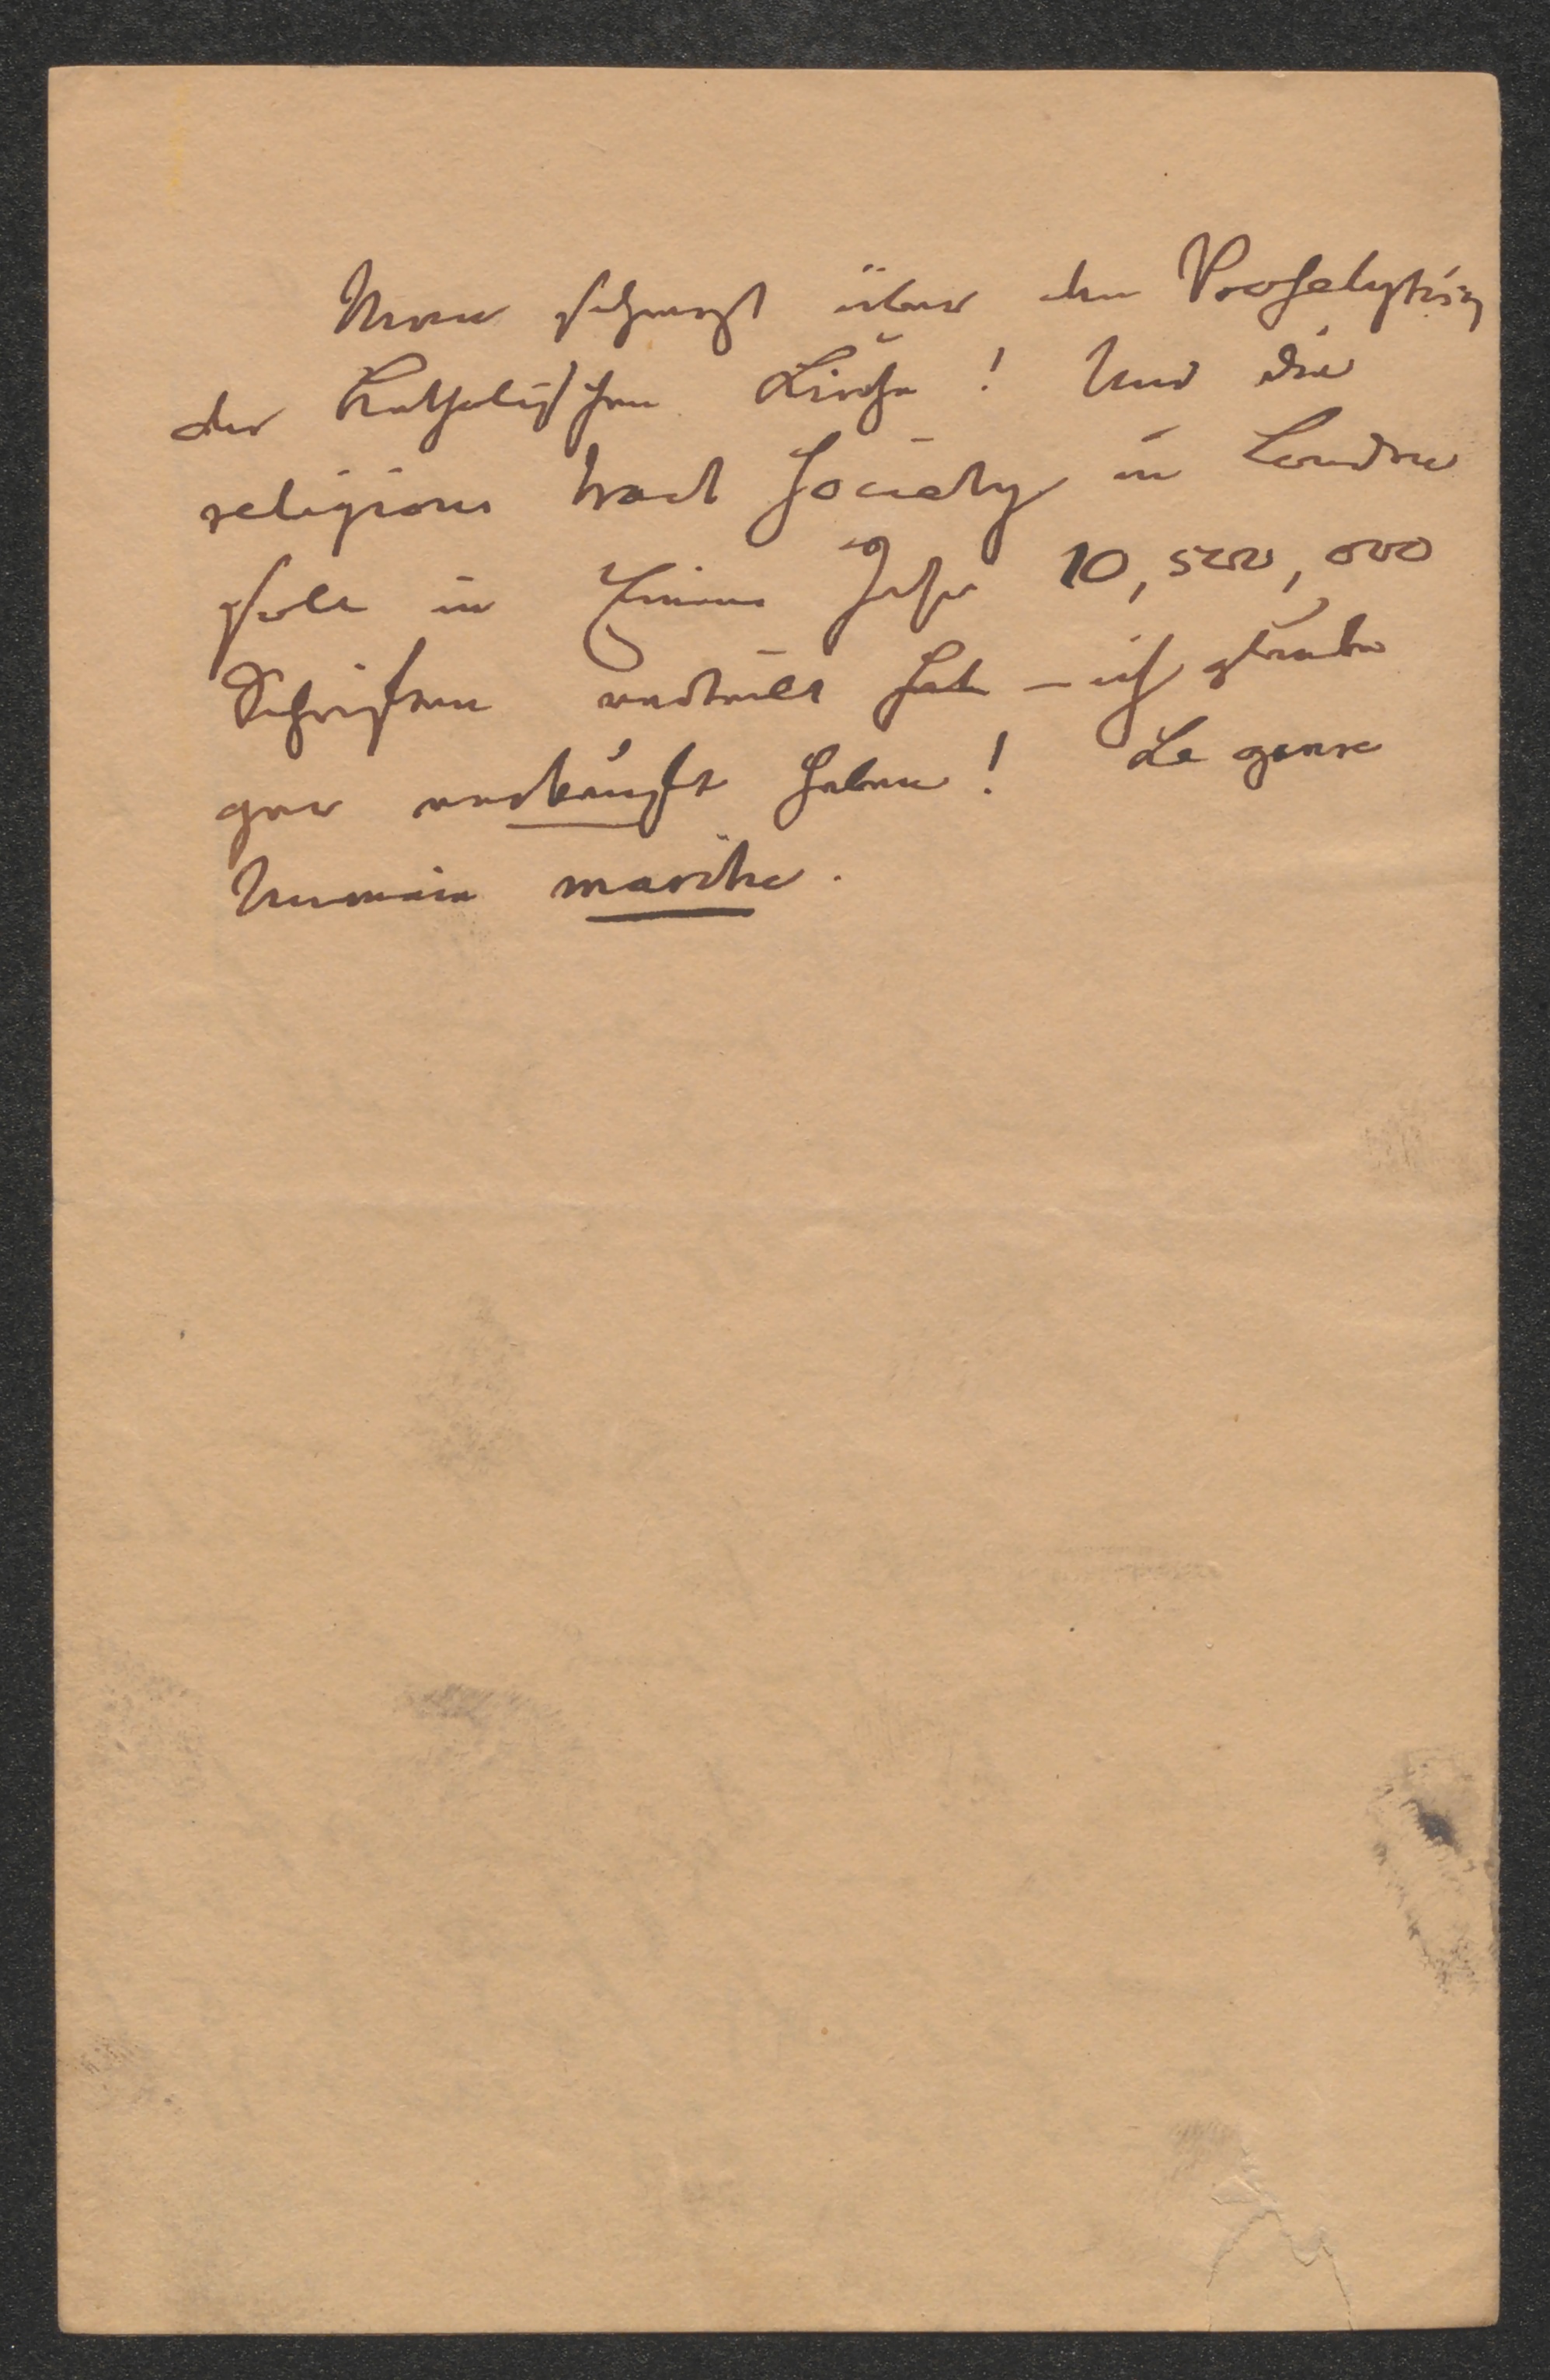 Man schimpft über den Proselytism
der Katholischen Kirche! Und die
religious tract Society in London
soll in Einem Jahr 10,500,000
Schriften verteilt hab – ich glaube
gar verkauft haben! Le genre
humain marche.